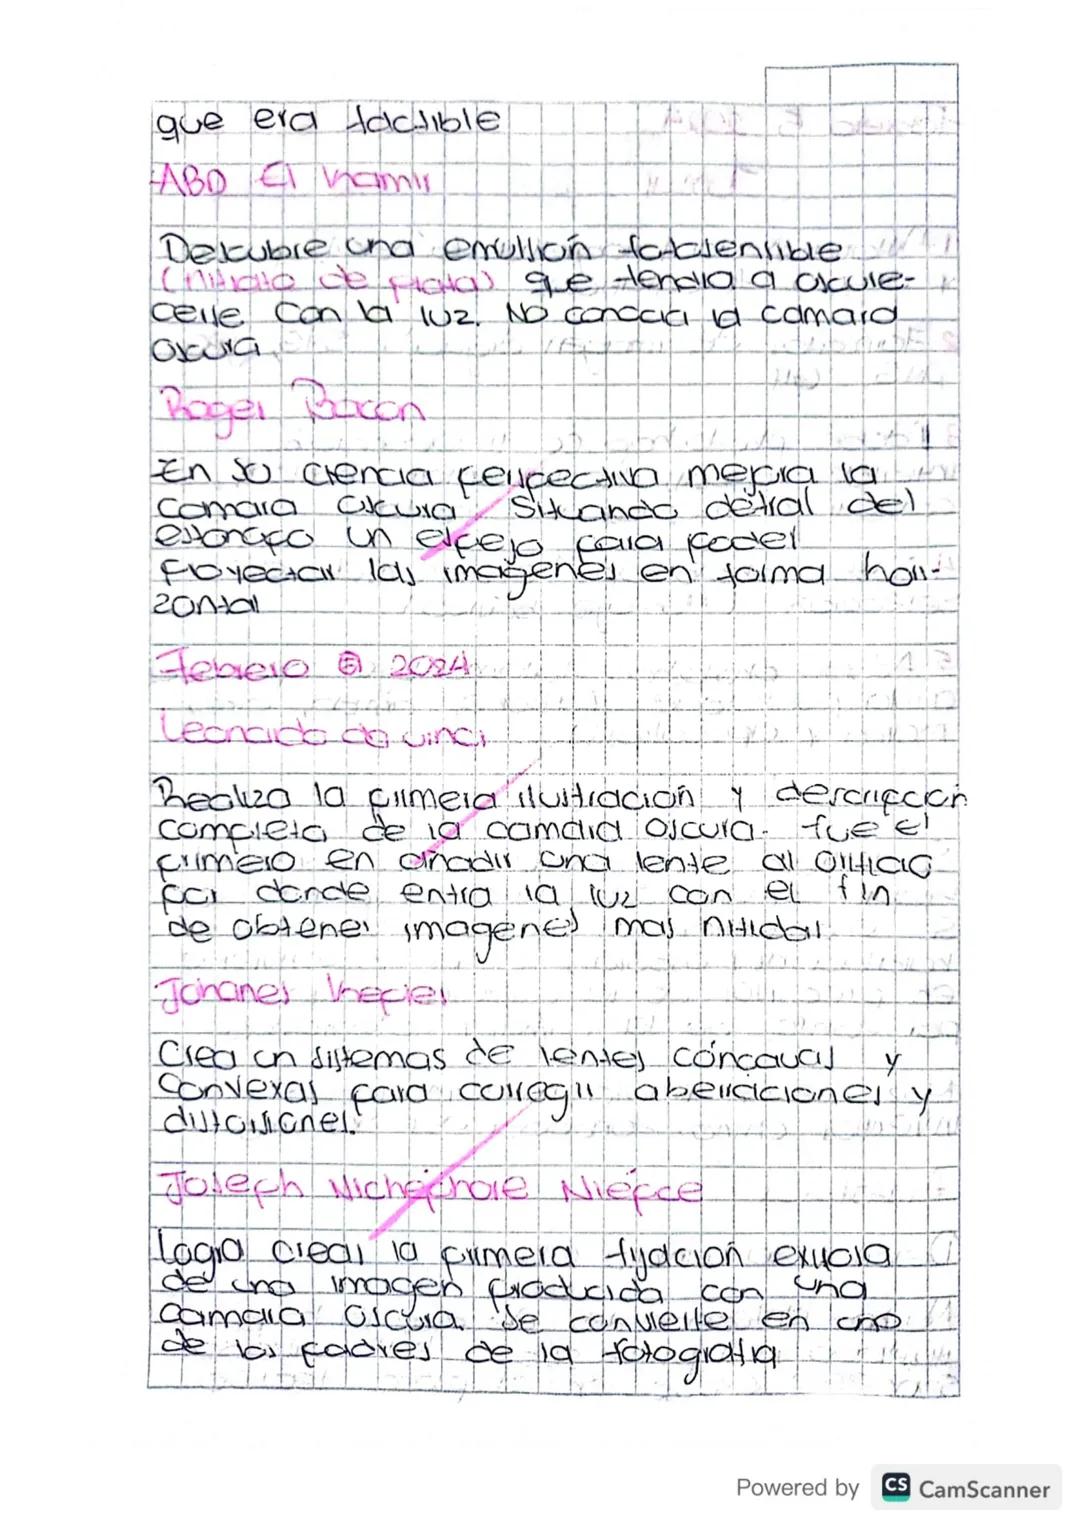 que era factible
ABD El Kamir
Descubre una emulsión fotosensible
(nitrato de plata) que tendia a oscure-
cerse con la luz. No conocia la camara
oscura
Roger Bacon
En su ciencia perspectiva mejora la
camara oscura situando detras del
estonopo un espejo para poder
proyectar las imagenes en forma hori-
zontal
Febrero 5 2024
Leonardo da vinci
Realiza la primera ilustración y descripcion
completa de la camara oscura. fue el
primero en añadir una lente al orificio
por donde entra la luz con el fin
de obtener imagenes mas nitidas
Johanes Kepler
Crea un sistemas de lentes cóncavas y
convexas para corregir aberraciones y
distorsiones.
Joseph Nichephore Niepce
Logra crear la primera fijación exitosa
de una imagen producida con una
camara oscura. Se convierte en uno
de los padres de la fotografia
Powered by CS CamScanner